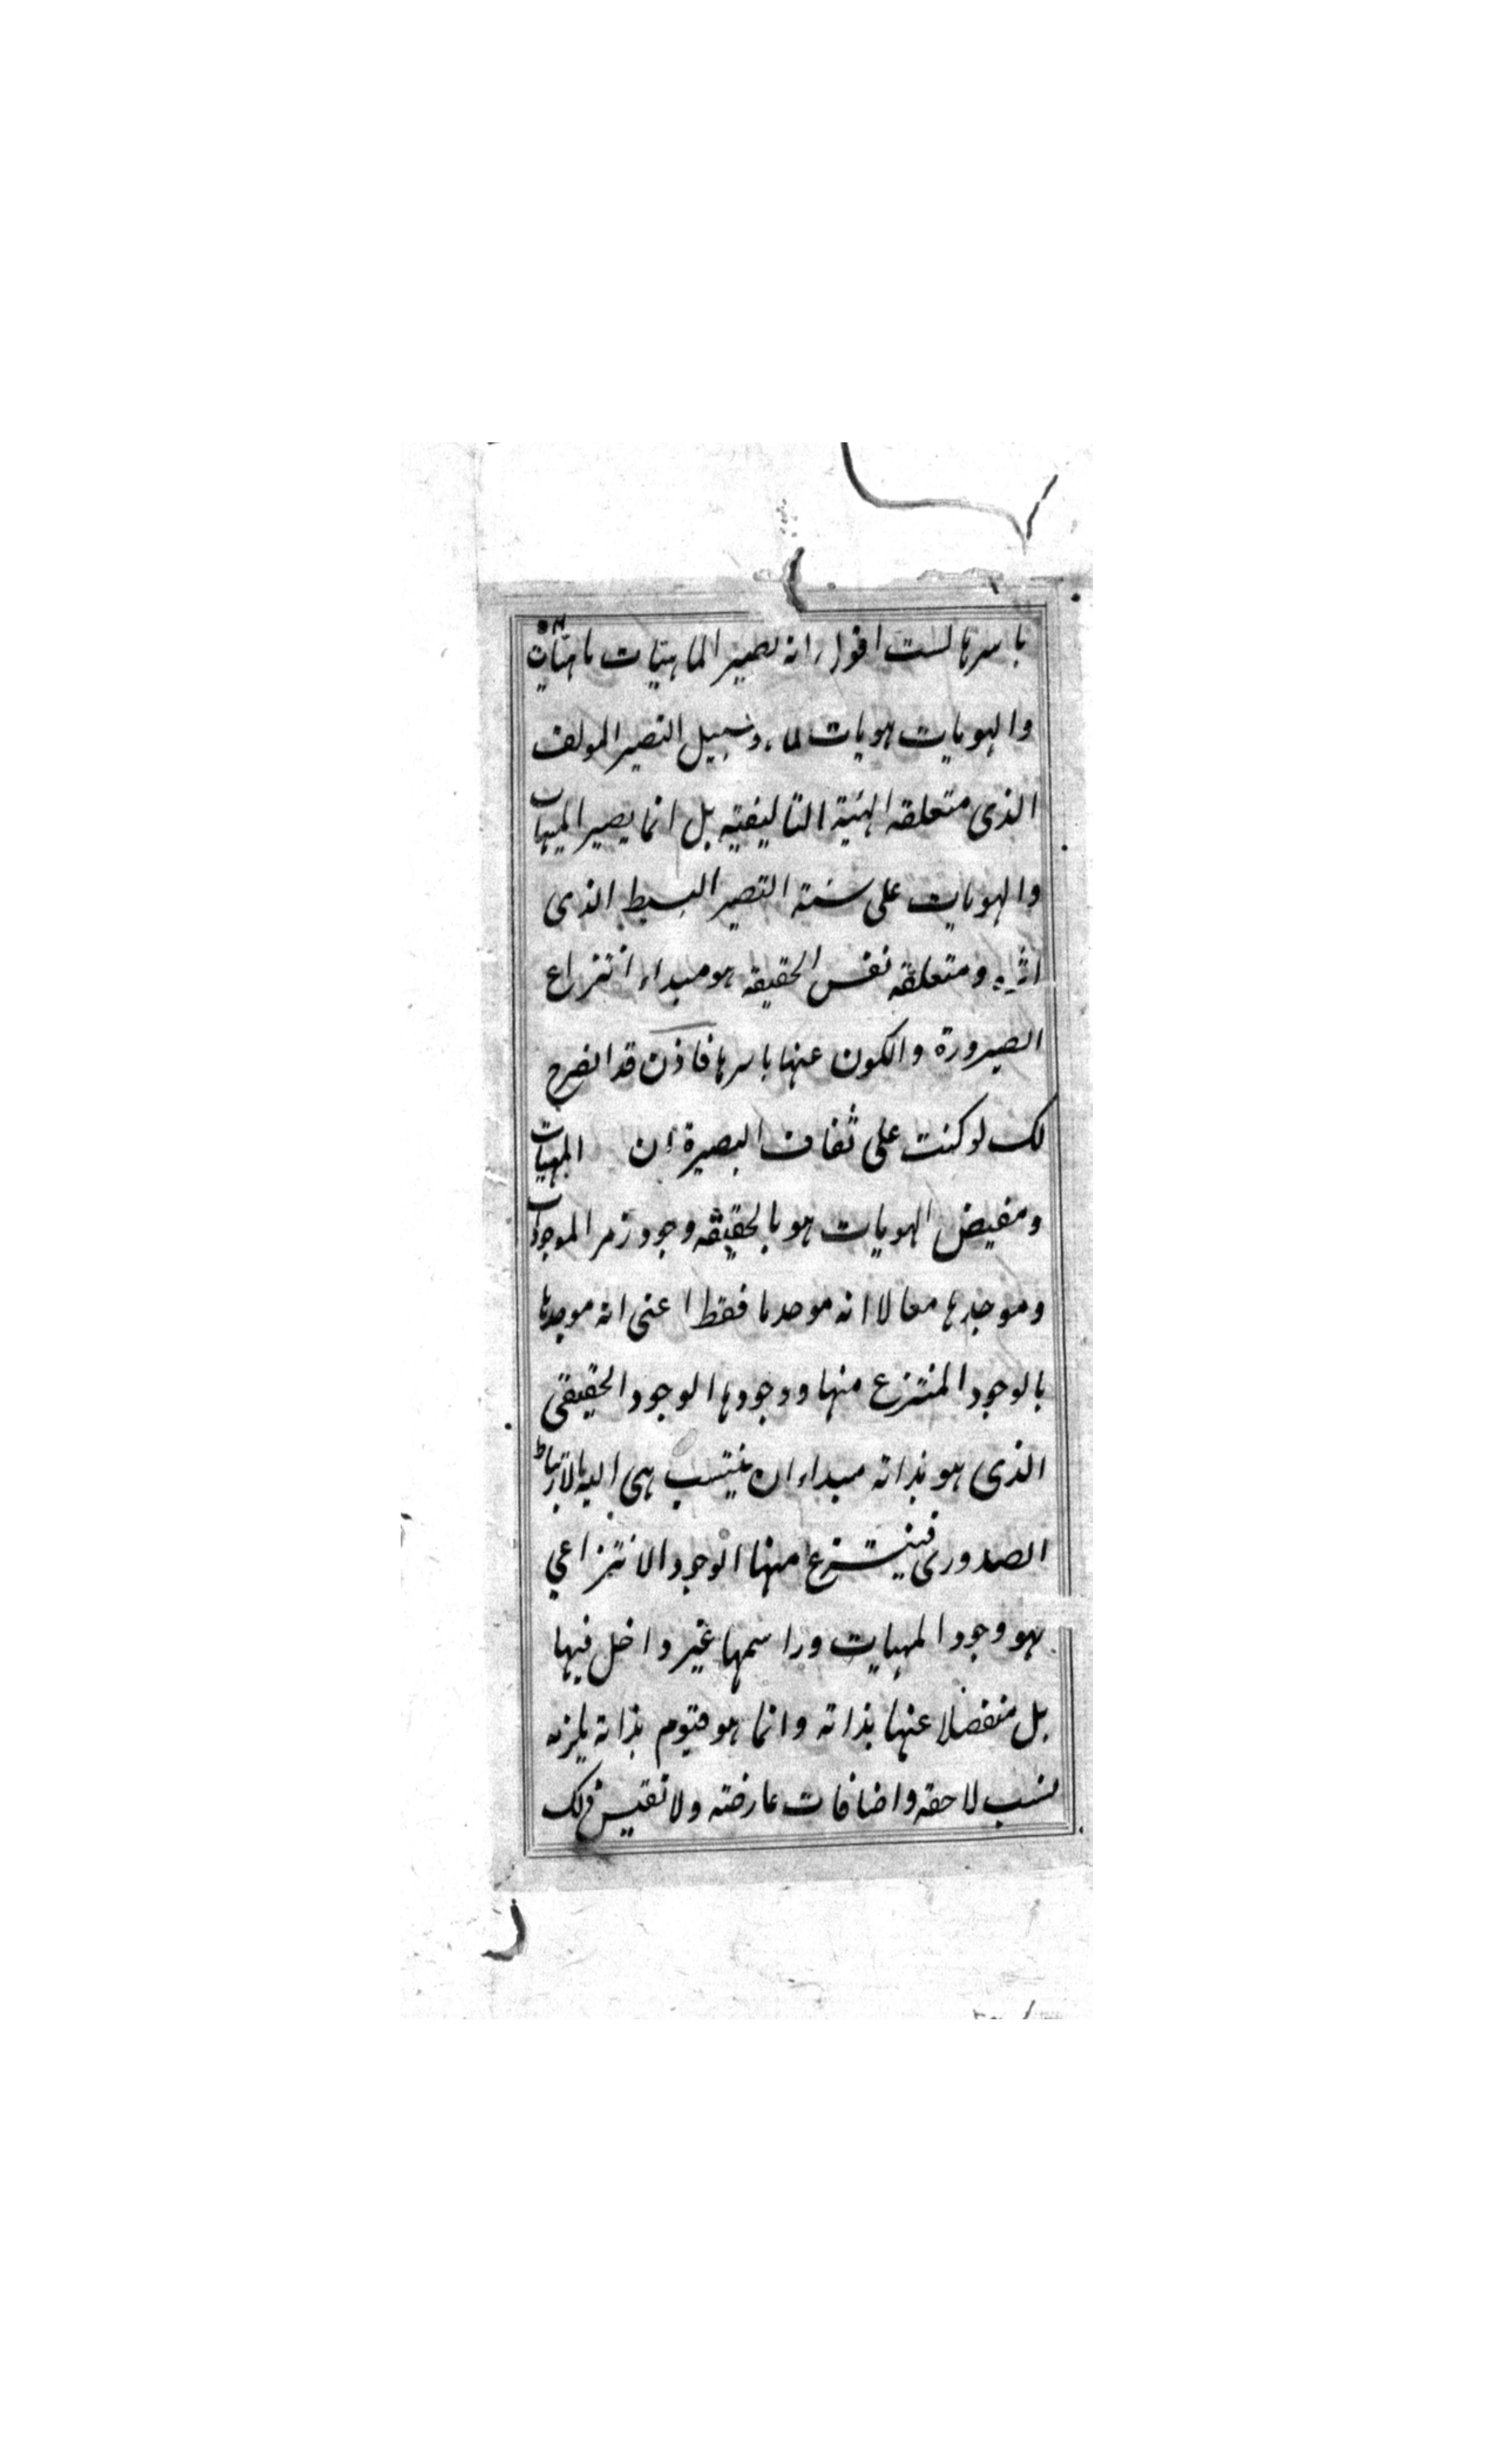 باسرها لست اقول انه يصير الماهيات ماهيات
والهويات هويات وسبيل التصير المولف
الذى متعلقه الهيئة التاليفية بل انما يصير المهيات
والهويات على سنة التصير البسيط الذى
اثره ومتعلقه نفس الحقيقه هو مبداء انتزاع
الصيرورة والكون عنها باسرها فاذن قد انصرح
لك لو كنت على ثقاف البصيرة ان المهيات
ومفيض الهويات هو بالحقيقه وجود زمر الموجودات
وموجدها معا لا انه موجدها فقط اعنى انه موجدها
بالوجود المنتزع منها ووجودها الوجود الحقيقى
الذى هو بذاته مبداء ان ينتسب هى اليه بالارتباط
الصدورى فينتزع منها الوجود الانتزاعي
هو وجود المهيات وراسمها غير داخل فيها
بل منفصلا عنها بذاته وانما هو قيوم بذاته يلزمه
نسب لاحقه واضافات عارضه ولا تقيس ذلك